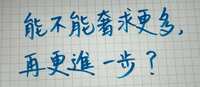 能不能奢求更多,
再更進一步?